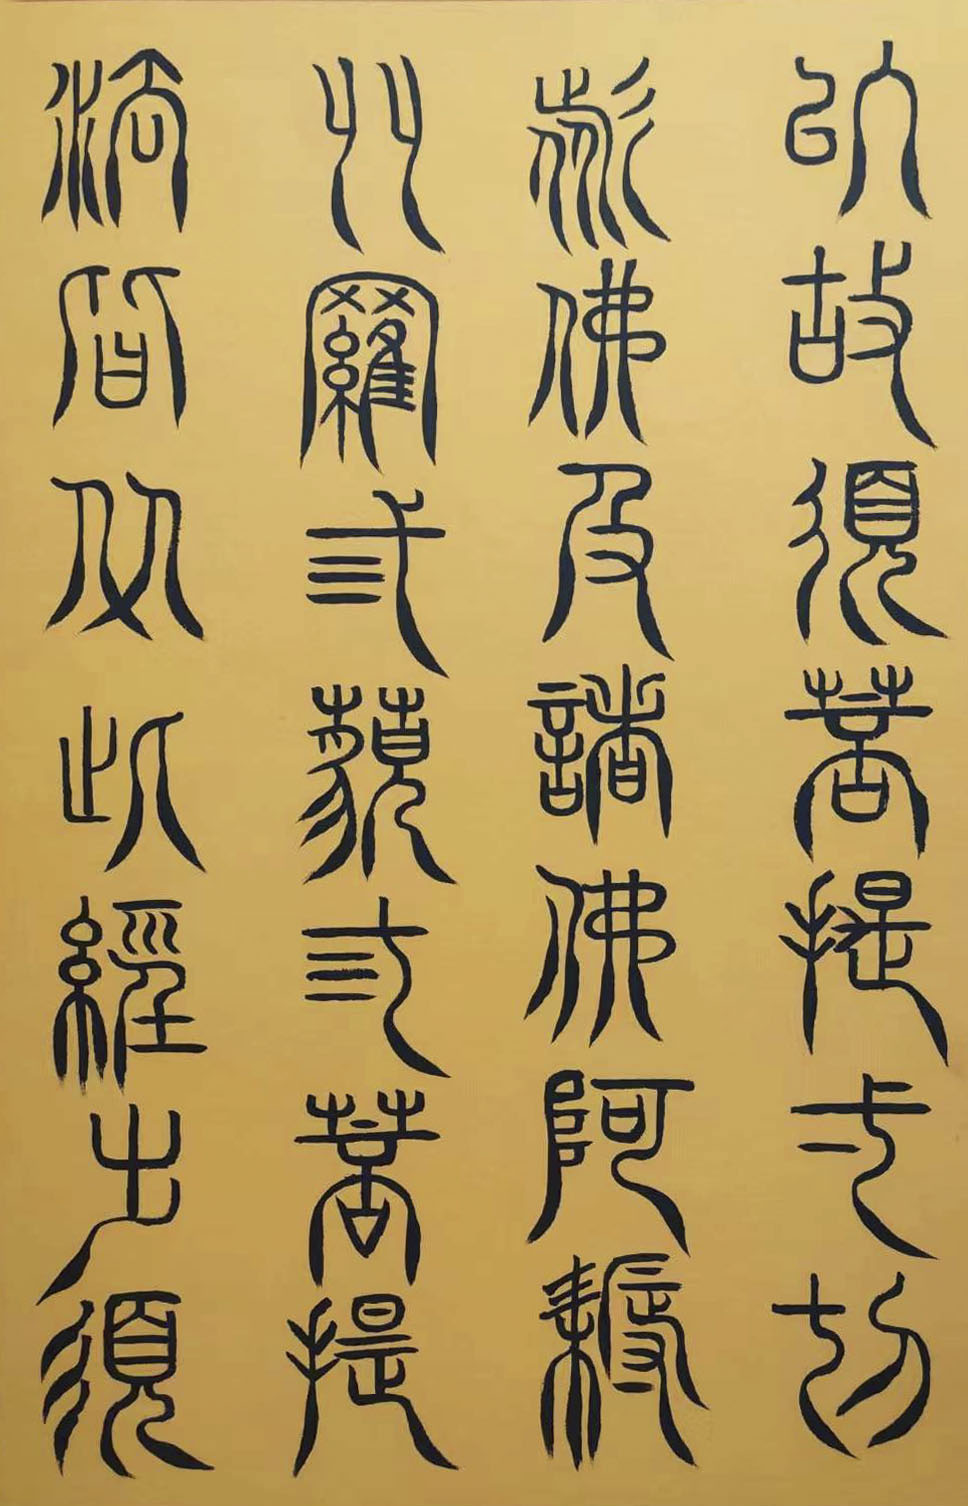 以故須菩提弌切
諸佛及諸佛阿耨
多羅弎藐弎菩提
法皆从此經出須